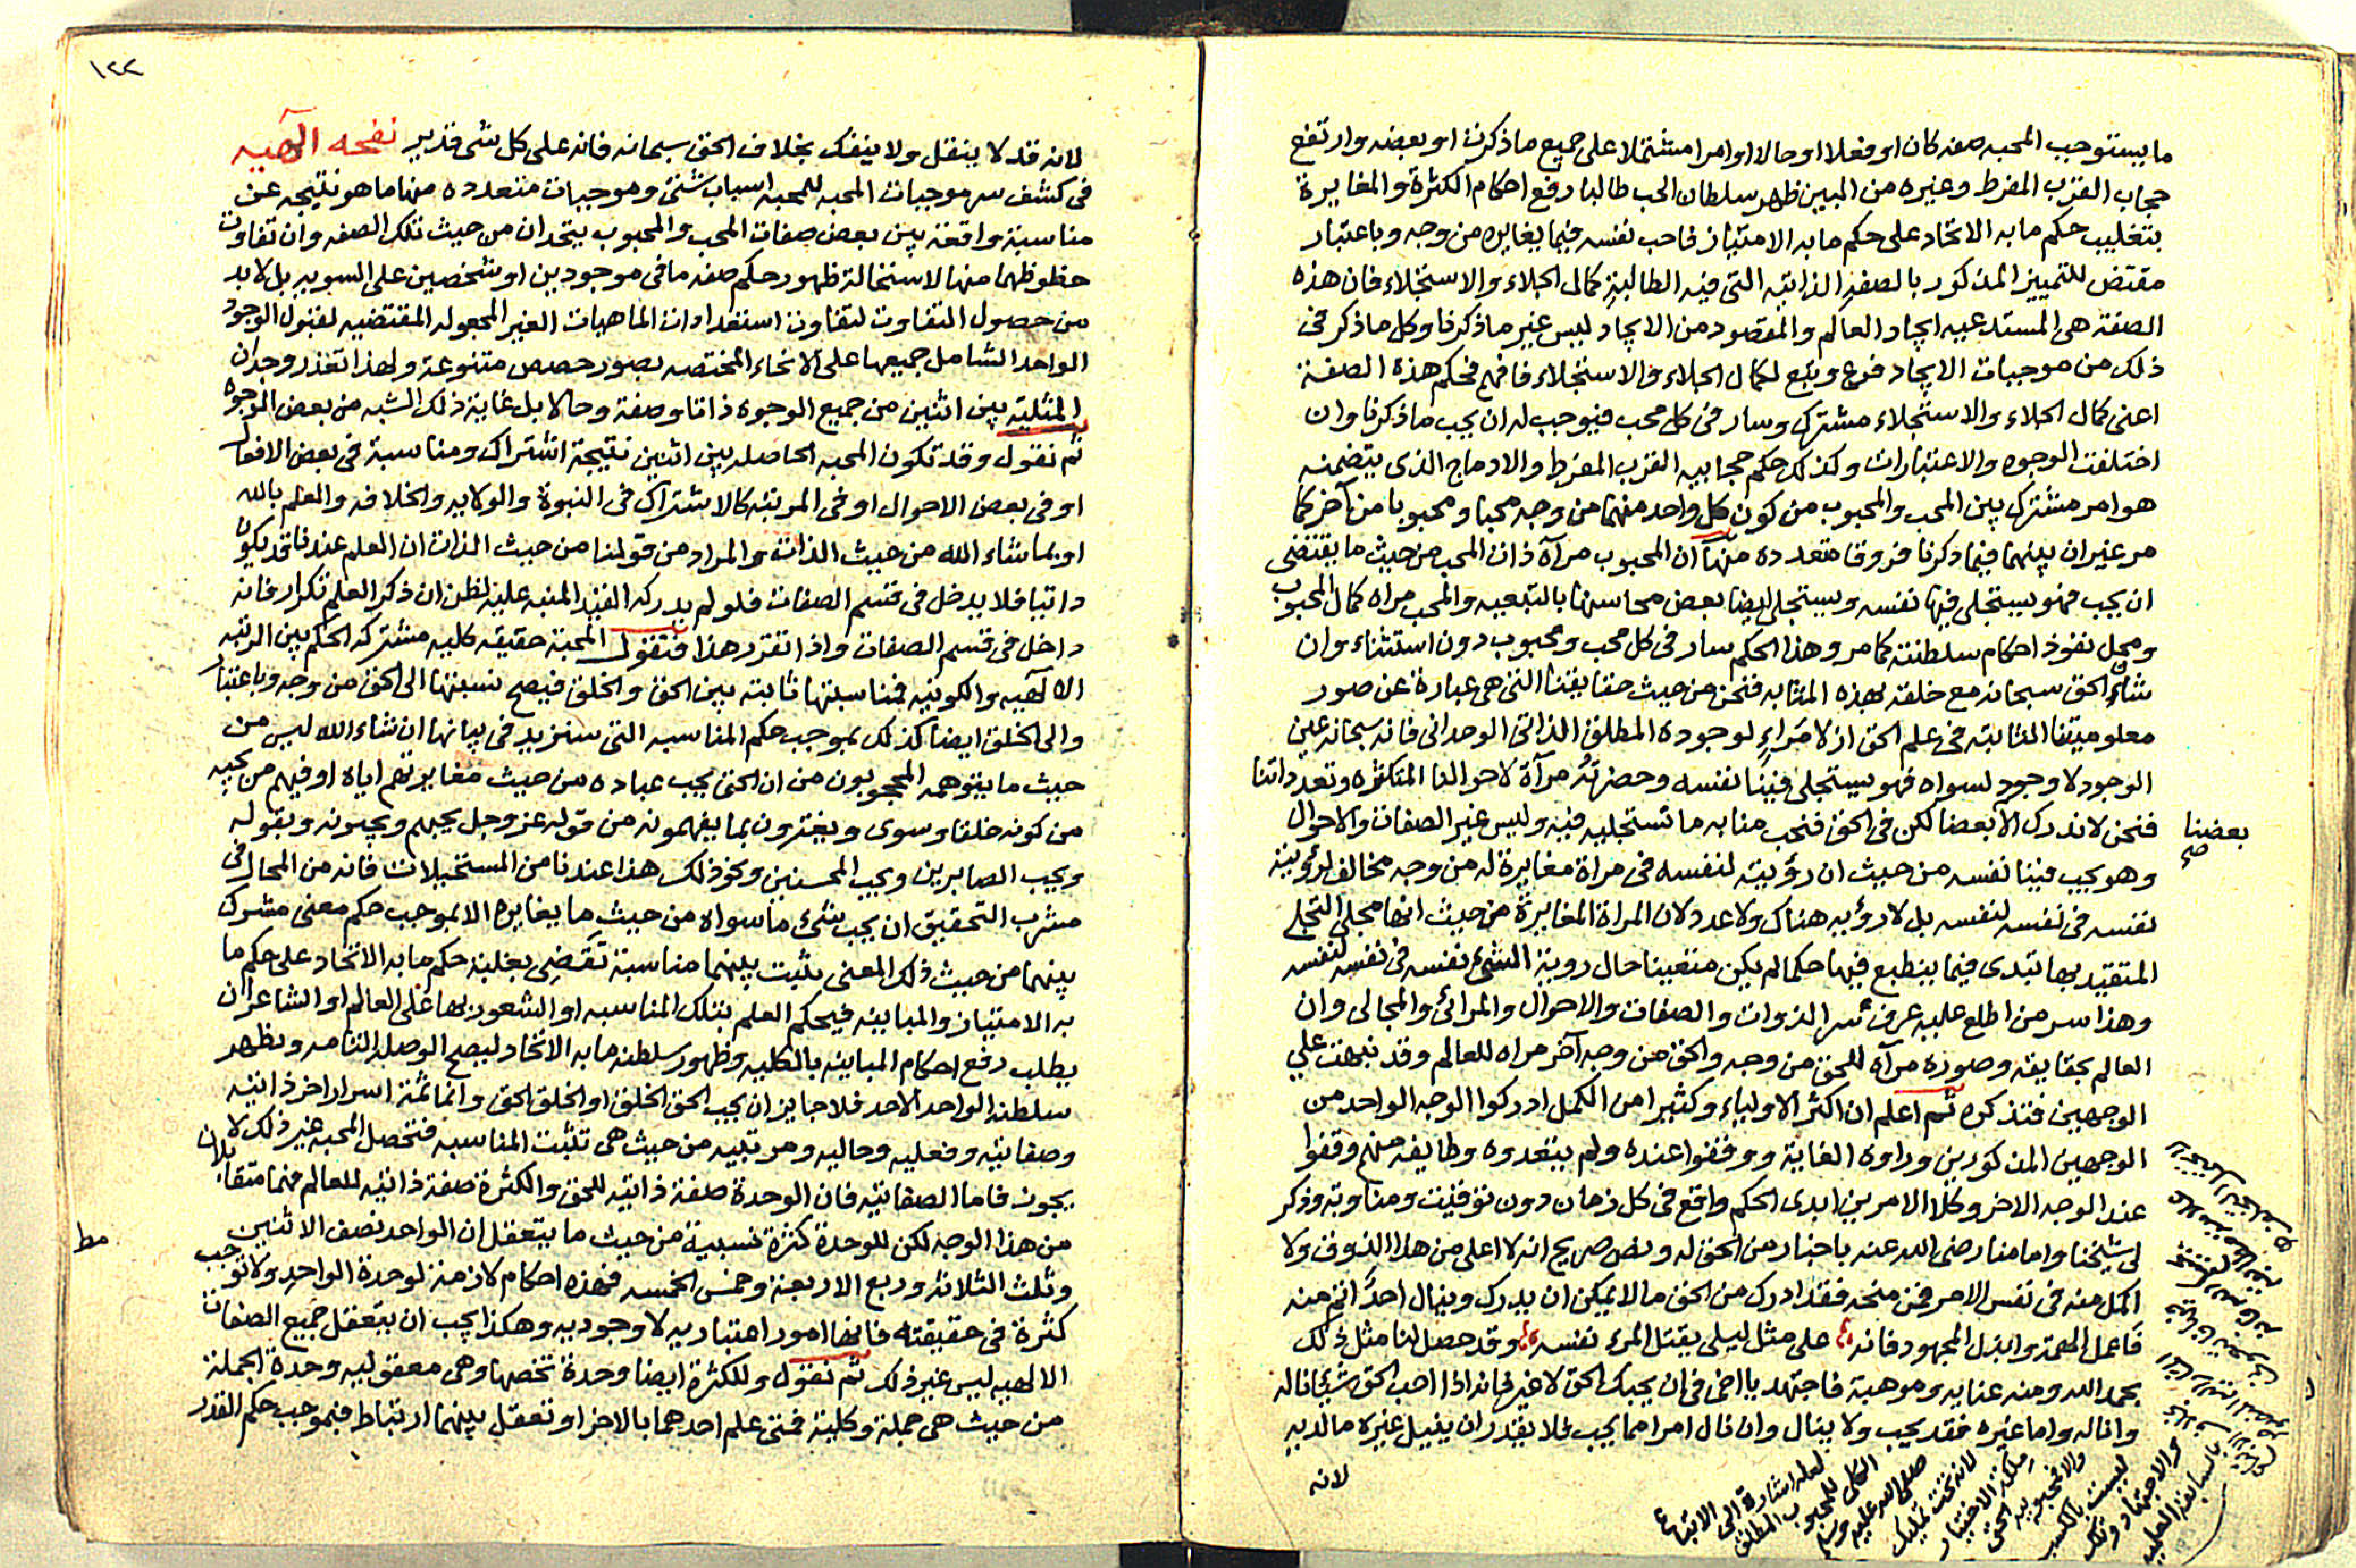 ما يستوجب المحبه صفه كان او فعلا او حالا او امرا مشتملا على جميع ما ذكرت او بعضه وارتفع
حجاب القرب المفرط وغيره من البين ظهر سلطان الحب طالبا رفع احكام الكثرة والمغايرة
بتغليب حكم ما به الاتحاد على حكم ما به الامتياز فاحب نفسه فيما يغايره من وجه وباعتبار
مقتض للتمييز المذكور بالصفه الذاتيه التى فيه الطالبة كمال الجلاء والاستجلاء فان هذه
الصفة هى المستدعيه ايجاد العالم والمقصود من الايجاد ليس غير ما ذكرنا وكل ما ذكر فى
ذلك من موجبات الايجاد فرع وتبع لكمال الجلاء والاستجلاء فافهم فحكم هذه الصفة
اعنى كمال الجلاء والاستجلاء مشترك وسار فى كل محب فيوجب له ان يحب ما ذكرنا وان
اختلفت الوجوه والاعتبارات وكذلك حكم حجابيه القرب المفرط والادماج الذى يتضمنه
هو امر مشترك بين المحب والمحبوب من كون كل واحد منهما من وجه محبا ومحبوبا من آخر كما
مر غير ان بينهما فيما ذكرنا فروقا متعدده منها ان المحبوب مرآة ذات المحب من حيث ما يقتضى
ان يحب فهو يستجلى فيها نفسه ويستجلى ايضا بعض محاسنها بالتبعيه والمحب مراه كمال المحبوب
ومحل نفوذ احكام سلطنته كما مر وهذا الحكم سار فى كل محب ومحبوب دون استثناء وان
شان الحق سبحانه مع خلقه بهذه المثابه فنحن من حيث حقايقنا التى هى عبارة عن صور
معلوميتنا الثابته فى علم الحق ازلا مراء لوجوده المطلق الذاتى الوحدانى فانه سبحانه عين
الوجود لا وجود لسواه فهو يستجلى فينا نفسه وحضرته مرآة لاحوالنا المتكثره وتعدداتنا
فنحن لا ندرك الا بعضا لكن فى الحق فنحب منا به ما نستجليه فيه وليس غير الصفات والاحوال
بعضنا صح
وهو يحب فينا نفسه من حيث ان رؤيته لنفسه فى مراة مغايرة له من وجه مخالف لرؤيته
نفسه فى نفسه لنفسه بل لا رؤيه هناك ولا عدد لان المراة المغايرة من حيث انها مجلى التجلى
المتقيد بها تبدى فيما ينطبع فيها حكما لم يكن متعينا حال روية الشىء نفسه فى نفسه لنفسه
وهذا سر من اطلع عليه عرف سر الذوات والصفات والاحوال والمرائى والمجالى وان
العالم بحقايقه وصوره مرآة للحق من وجه والحق من وجه آخر مراه للعالم وقد نبهت على
الوجهين فتذكره ثم اعلم ان اكثر الاولياء وكثيرا من الكمل ادركوا الوجه الواحد من
الوجهين المذكورين وراوه الغاية ووقفوا عنده ولم يتعدوه وطايفه منهم وقفوا
عند الوجه الاخر وكلا الامرين ابدى الحكم واقع فى كل زمان دون توقيت ومناوبة وذكر
لى شيخنا وامامنا رضى الله عنه باخبار من الحق له ونص صريح انه لا اعلى من هذا الذوق ولا
اكمل منه فى نفس الامر فمن منحه فقد ادرك من الحق ما لا يمكن ان يدرك وينال احد اتم منه
فاعمل الهمة وابذل المجهود فانه على مثل ليلى يقتل المرء نفسه وقد حصل لنا مثل ذلك
بحمد الله ومنه عنايه وموهبة فاجتهد يا اخى فى ان يحبك الحق لا غير فانه اذا احب الحق شيئا ناله
وانا له واما غيره فقد يحب ولا ينال وان نال امرا مما يحب فلا يقدر ان ينيل غيره ما لديه
لانه
لعله اشارة الى الاتباع
الكلى للمحبوب المطلق
صلى الله عليه وسلم
لانه تحت تمليك
والمحبوبيه الحق
ليست بالكسب
والاجتهاد وتلك
بالسابقة العليه
١٢٢
لانه قد لا ينقل ولا ينفك بخلاف الحق سبحانه فانه على كل شى قدير نفحه الهيه
فى كشف سر موجبات المحبه للمحبه اسباب شتى وموجبات متعدده منها ما هو نتيجه عن
مناسبة واقعة بين بعض صفات المحب والمحبوب يتحدان من حيث تلك الصفه وان تفاوت
حظوظهما منها لاستحالة ظهور حكم صفه ما فى موجودين او شخصين على السويه بل لا بد
من حصول التفاوت لتفاوت استعدادات الماهيات الغير المجعوله المقتضيه لقبول الوجود
الواحد الشامل جميعها على الانحاء المختصه بصور حصص متنوعة ولهذا تعذر وجدان
المثليه بين اثنين من جميع الوجوه ذاتا وصفة وحالا بل غاية ذلك الشبه من بعض الوجوه
ثم نقول وقد تكون المحبه الحاصله بين اثنين نتيجة اشتراك ومناسبة فى بعض الافعال
او فى بعض الاحوال او فى المرتبه كالاشتراك فى النبوة والولايه والخلافه والعلم بالله
او بما شاء الله من حيث الذات والمراد من قولنا من حيث الذات ان العلم عندنا قد يكون
ذاتيا فلا يدخل فى قسم الصفات فلو لم يدركه القيد المنبه عليه لظن ان ذكر العلم تكرار فانه
داخل فى قسم الصفات واذا تقرر هذا فنقول المحبة حقيقه كليه مشتركه الحكم بين الرتبه
الالهيه والكونيه فمناسبتها ثابته بين الحق والخلق فيصح نسبتها الى الحق من وجه وباعتبار
والى الخلق ايضا كذلك بموجب حكم المناسبه التى سنزيد فى بيانها ان شاء الله ليس من
حيث ما يتوهمه المحجوبون من ان الحق يحب عباده من حيث مغايرتهم اياه او فيهم من يحبه
من كونه خلقا وسوى ويغترون بما يفهمونه من قوله عز وجل يحبهم ويحبونه وبقوله
ويحب الصابرين ويحب المحسنين ونحو ذلك هذا عندنا من المستحيلات فانه من المحال فى
مشرب التحقيق ان يحب شىء ما سواه من حيث ما يغايره الا بموجب حكم معنى مشترك
بينهما من حيث ذلك المعنى يثبت بينهما مناسبة تقضى بغلبة حكم ما به الاتحاد على حكم ما
به الامتياز والمباينه فيحكم العلم بتلك المناسبه او الشعور بها على العالم او الشاعر ان
يطلب رفع احكام المباينه بالكليه وظهور سلطنه ما به الاتحاد ليصح الوصله التامه ويظهر
سلطنه الواحد الاحد فلا جايز ان يحب الحق الخلق او الخلق الحق وانما ثمة اسرار اخر ذاتيه
وصفاتيه وفعليه وحاليه ومرتبيه من حيث هى تثبت المناسبه فتحصل المحبه غير ذلك لا
يجوز فاما الصفاتيه فان الوحدة صفة ذاتيه للحق والكثرة صفة ذاتيه للعالم فهما متقابلان
من هذا الوجه لكن للوحدة كثرة نسبية من حيث ما يتعقل ان الواحد نصف الاثنين
مط
وثلث الثلاثه وربع الاربعة وخمس الخمسه فهذه احكام لازمة لوحدة الواحد ولا توجب
كثرة فى حقيقته فانها امور اعتباريه لا وجوديه وهكذا يجب ان يتعقل جميع الصفات
الالهيه ليس غير ذلك ثم نقول وللكثرة ايضا وحدة تخصها وهى معقوليه وحدة الجملة
من حيث هى جملة وكلية فمتى علم احدهما بالاخر او تعقل بينهما ارتباط فبموجب حكم القدر